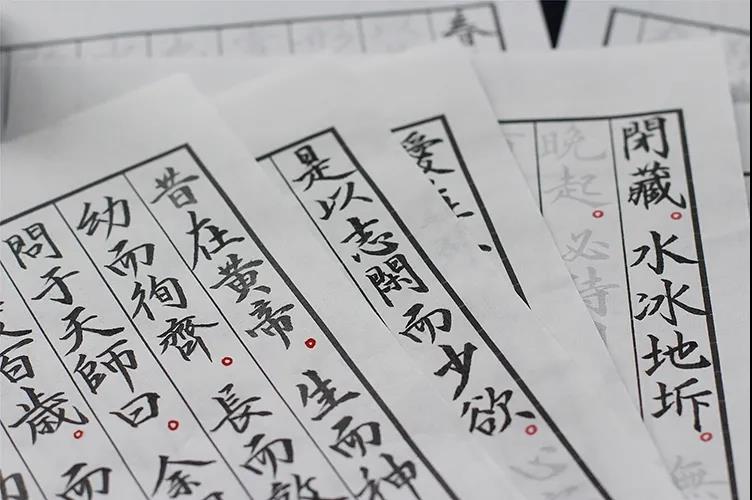 春
閉藏。水冰地坼。無
晚起。必待
是以志閑而少欲。心
昔在黄帝。生而神
幼而徇齊。長而敦
問于天師曰。余
百歲。而